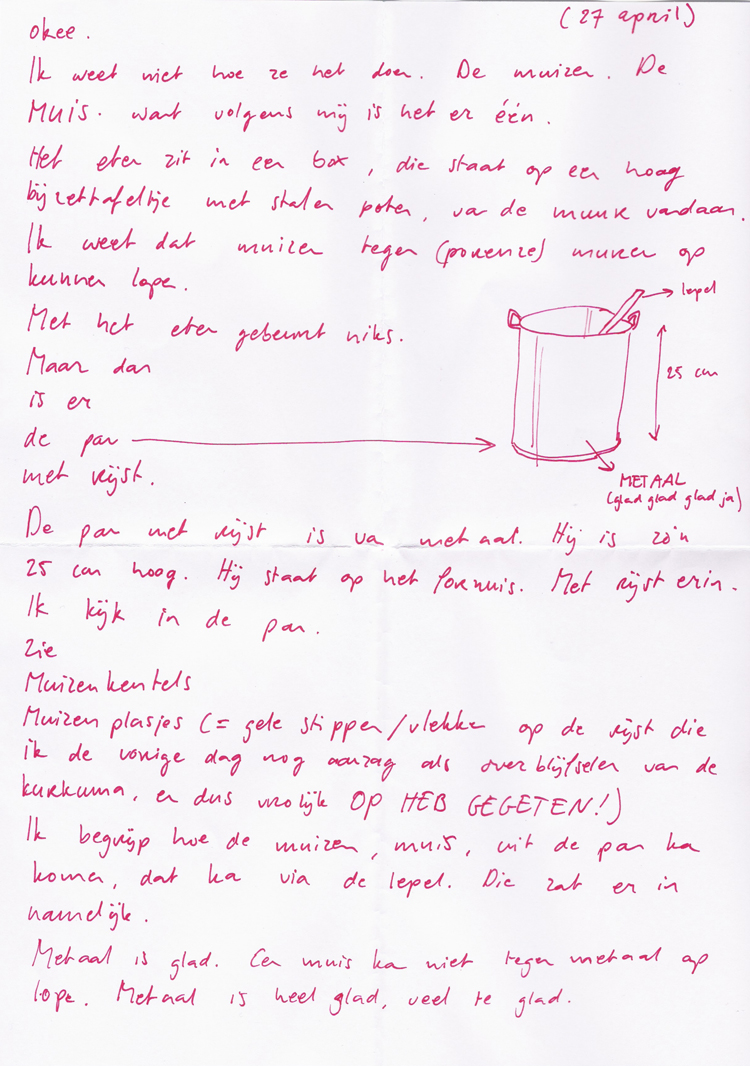 (27 april)
okee.
Ik weet niet hoe ze het doen. De muizen. De
MUIS. want volgens mij is het er één.
Het eten zit in een box, die staat op een hoog
bijzettafeltje met stalen poten, van de muur vandaan.
Ik weet dat muizen tegen (poreuze) muren op
kunnen lopen.
Met het eten gebeurt niks.
Maar dan
is er
de pan
met rijst.
lepel
25 cm
METAAL
(glad glad glad ja)
De pan met rijst is van metaal. Hij is zo'n
25 cm hoog. Hij staat op het fornuis. Met rijst erin.
Ik kijk in de pan.
Zie
Muizenkeutels
Muizenplasjes (= gele stippen/vlekken op de rijst die
ik de vorige dag nog aanzag als overblijfselen van de
kurkuma, en dus vrolijk OP HEB GEGETEN!)
Ik begrijp hoe de muizen, muis, uit de pan kan
komen, dat kan via de lepel. Die zat er in
namelijk.
Metaal is glad. Een muis kan niet tegen metaal op
lopen. Metaal is heel glad, veel te glad.